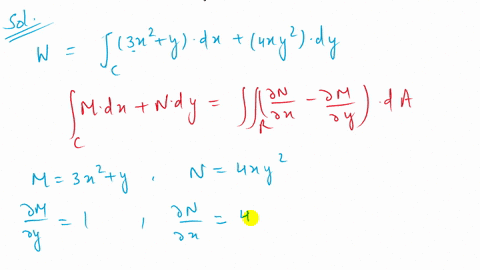 Sol.
W = ∫_C (3x²+y)·dx + (4xy²)·dy
∫_C M·dx + N·dy = ∬_R (∂N/∂x − ∂M/∂y)·dA
M = 3x²+y , N = 4xy²
∂M/∂y = 1 , ∂N/∂x = 4